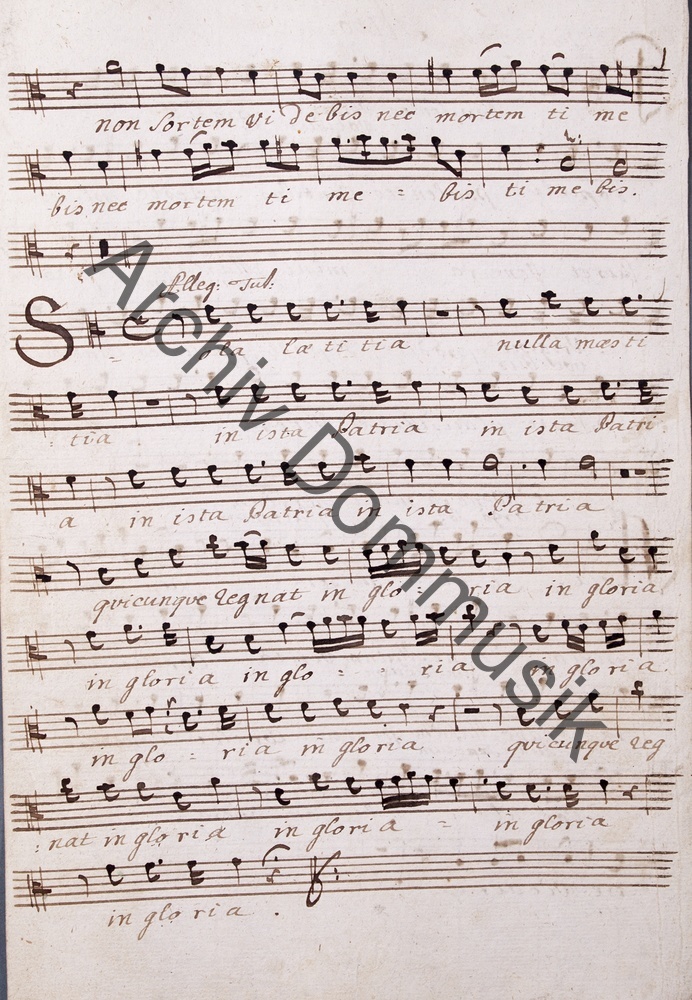 non sortem vi debis nec mortem ti me
bis nec mortem ti me = bis ti me bis.
Alleg: Tut:
Sola læ ti tia nulla mæs ti
= tia in ista Patria in ista Patri
a in ista Patria in ista Pa tria
quicunque regnat in glo = ria in gloria
in gloria in glo = = ria in gloria.
in glo = ria in gloria quicunque reg
= nat in gloria in gloria = in gloria
in gloria.
Archiv Dommusik